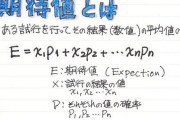 期待値とは
ある試行を行ってその結果(数値)の平均値の
E=x₁p₁+x₂p₂+…xₙpₙ
E:期待値(Expection)
X:試行の結果の値
x₁,x₂,…xₙ
P:それぞれの値の確率
P₁,P₂…Pₙ